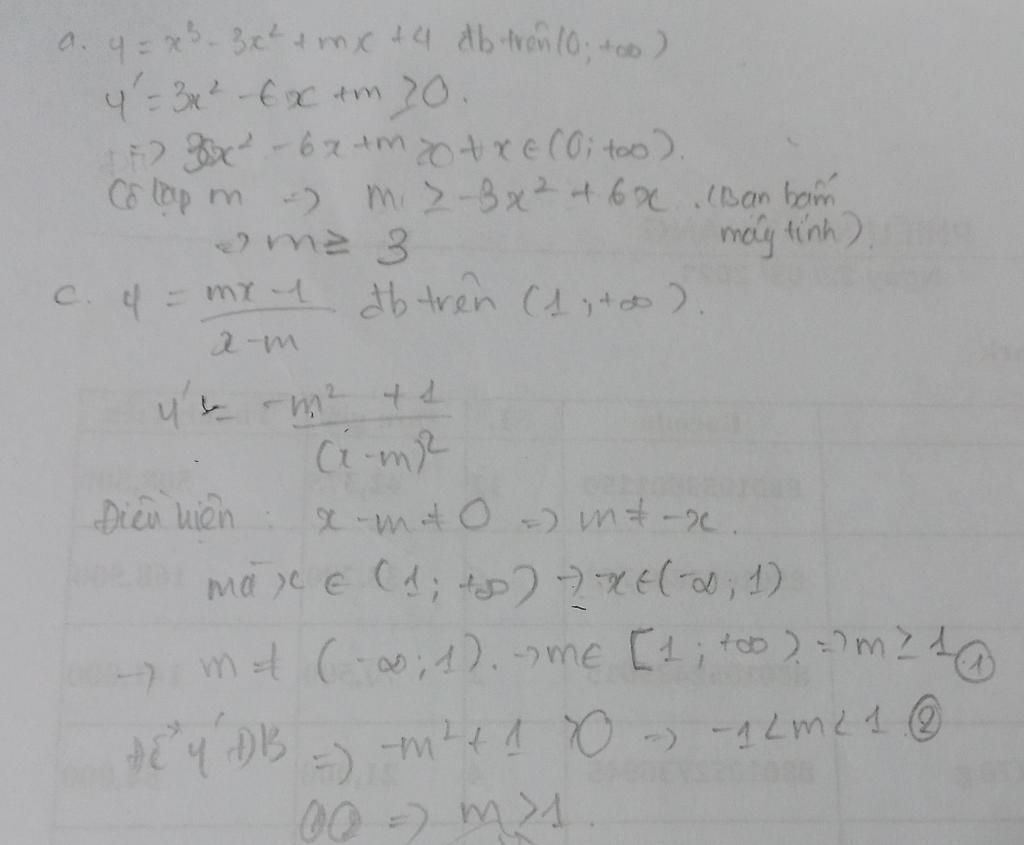 a. y = x³ - 3x² + mx + 4 đb trên (0; +∞)
y' = 3x² - 6x + m ≥ 0.
=> 3x² - 6x + m ≥ 0 ∀x ∈ (0; +∞).
Cô lập m => m ≥ -3x² + 6x. (Bạn bấm
máy tính).
=> m ≥ 3
c. y = (mx - 1)/(x - m) đb trên (1; +∞).
y' = (-m² + 1)/(x - m)²
Điều kiện : x - m ≠ 0 => m ≠ -x.
mà x ∈ (1; +∞) → -x ∈ (-∞; 1)
→ m ≠ (-∞; 1). → m ∈ [1; +∞) => m ≥ 1 ①
Để y' ĐB => -m² + 1 > 0 => -1 < m < 1 ②
①② => m > 1.